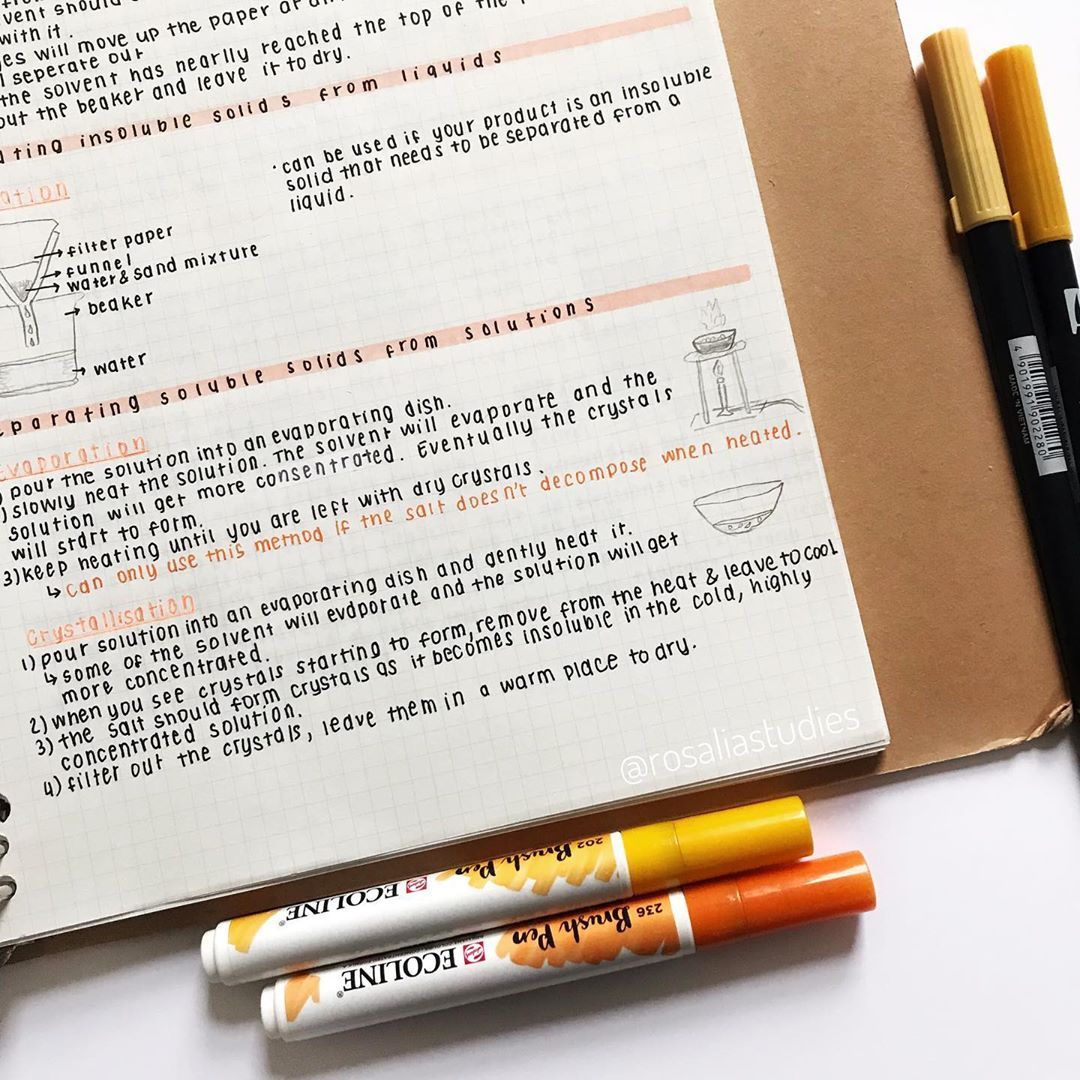 vent should
with it.
es will move up the paper
seperate out
the solvent has nearlly reached the top of the
out the beaker and leave it to dry.
ating insoluble solids from liquids
ation
· can be used if your product is an insoluble
solid that needs to be separated from a
liquid.
filter paper
funnel
water & sand mixture
beaker
water
parating soluble solids from solutions
Evaporation
) pour the solution into an evaporating dish.
) slowly heat the solution. The solvent will evaporate and the
solution will get more consentrated. Eventually the crystals
will start to form.
3) keep heating until you are left with dry crystals.
↳ can only use this method if the salt doesn't decompose when heated.
Crystallisation
1) pour solution into an evaporating dish and gently heat it.
↳ some of the solvent will evaporate and the solution will get
more concentrated.
2) when you see crystals starting to form, remove from the heat & leave to cool
3) the salt should form crystals as it becomes insoluble in the cold, highly
concentrated solution.
4) filter out the crystals, leave them in a warm place to dry.
@rosaliastudies
202 Brush Pen
ECOLINE®
236 Brush Pen
ECOLINE®
4 901991 902280
MADE IN VIETNAM